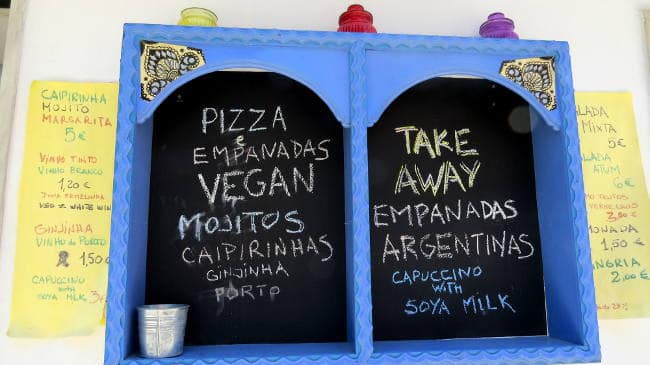 CAIPIRINHA
MOJITO
MARGARITA
5€
VINHO TINTO
VINHO BRANCO
1,20 €
RED & WHITE WIN
GINJINHA
VINHO do PORTO
1,50
CAPUCCINO
WITH
SOYA MILK
PIZZA
E
EMPANADAS
VEGAN
MOJITOS
CAIPIRINHAS
GINJINHA
PORTO
TAKE
AWAY
EMPANADAS
ARGENTINAS
CAPUCCINO
WITH
SOYA MILK
LADA
MIXTA
5€
LADA
ATUM
6€
1,50€
NGRIA
2,00€